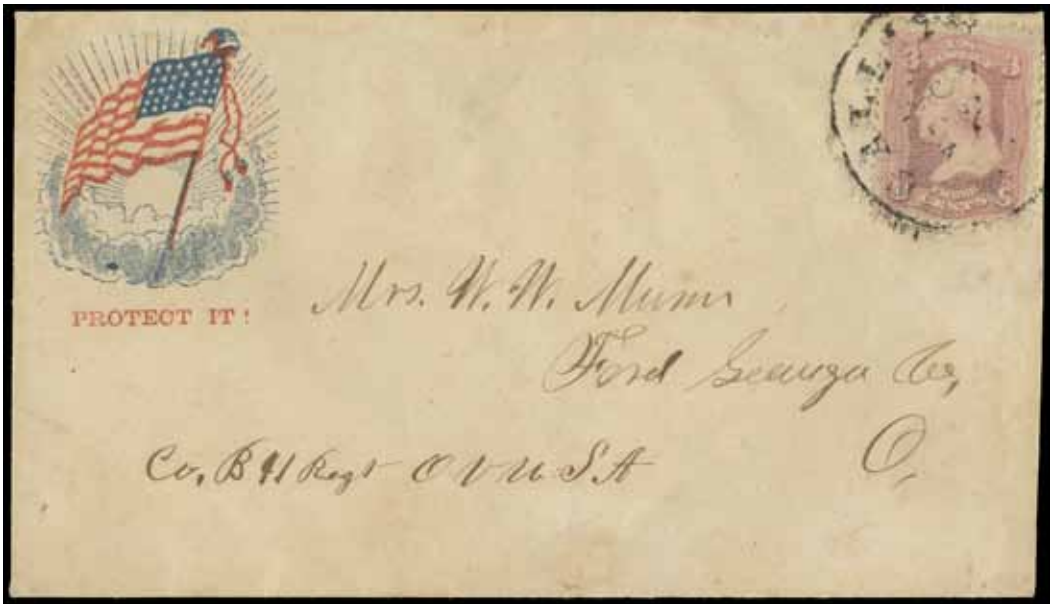 PROTECT IT!
Mrs. W. W. Munn
Ford Geauga Co,
O,
Co, B 41 Regt O V U S. A